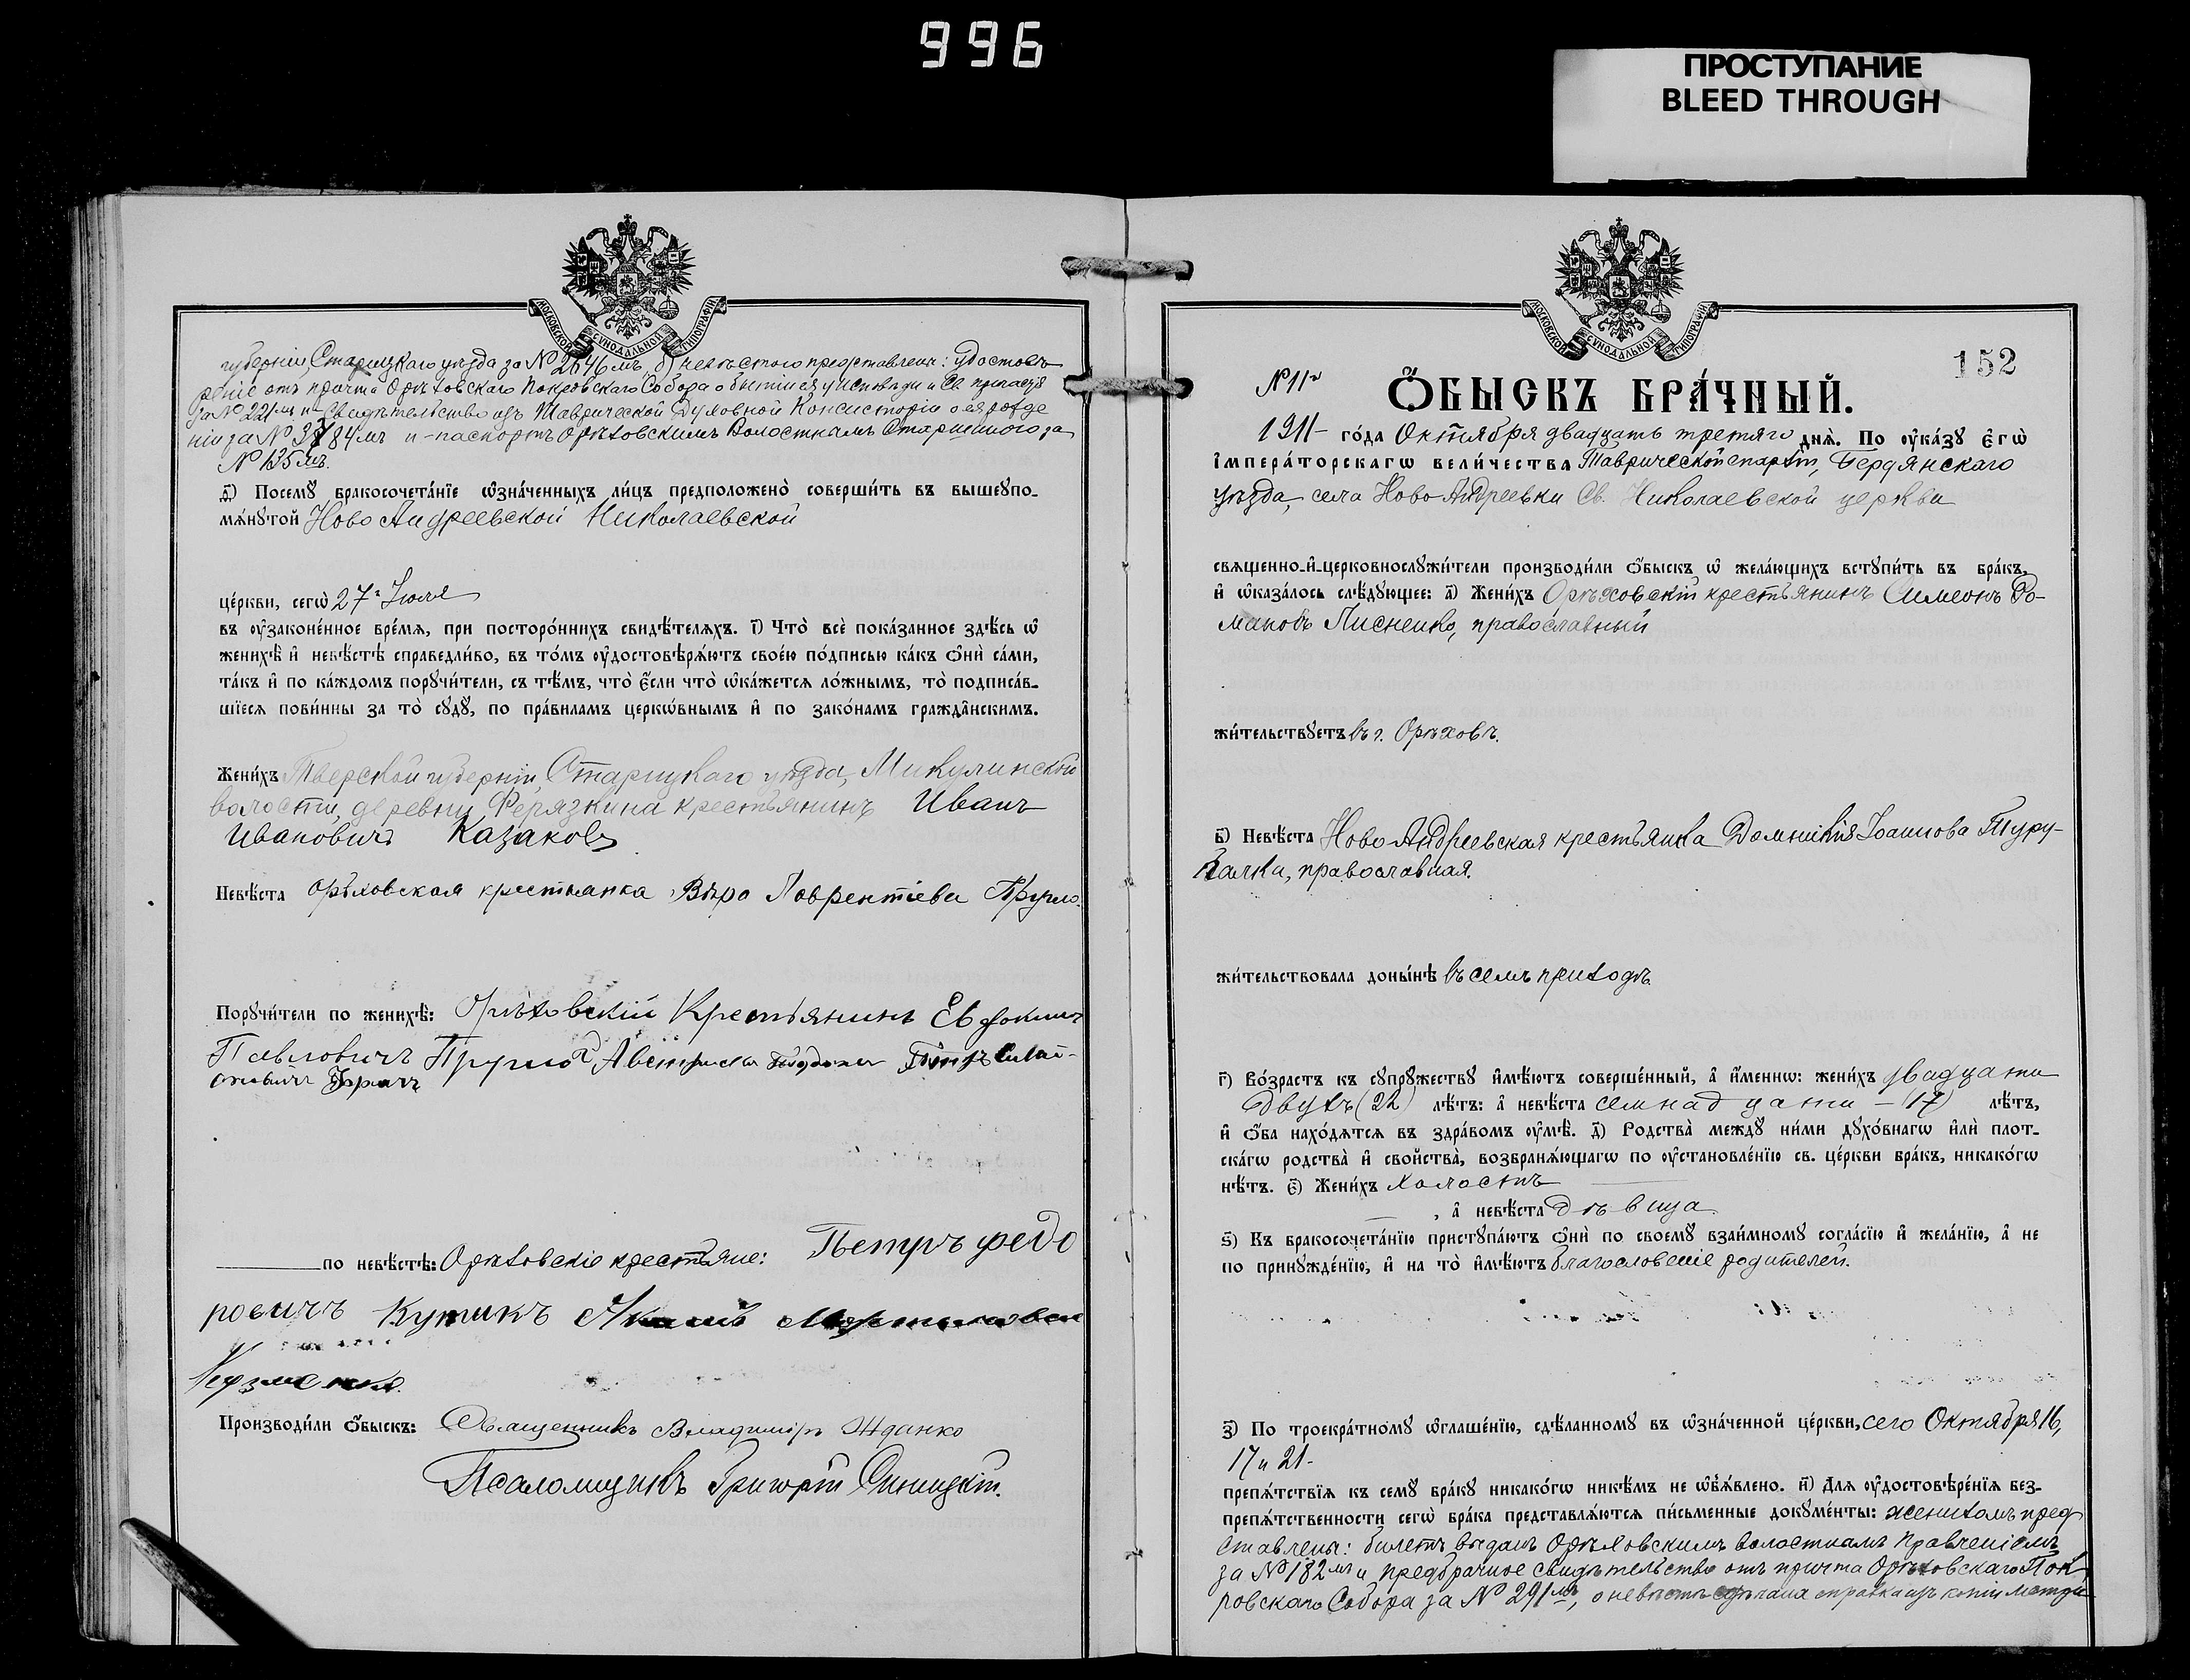 996
ПРОСТУПАНИЕ
BLEED THROUGH
МОСКОВСКОЙ СѴНОДАЛЬНОЙ ТИПОГРАФІИ
губерніи Старицкаго уѣзда за № 2646мъ, б) невѣстою представлены: удостовѣ-
реніе отъ причта Орѣховскаго Покровскаго Собора о бытіи ея у исповѣди и Св. причастія
за № 221мъ и Свидѣтельство изъ Таврической Духовной Консисторіи о ея рожде
ніи за № 84мъ и паспортъ Орѣховскимъ Волостнымъ Старшиною за
№ 135мъ.
д҃і) Посемꙋ̀ бракосочета́нїе ѡ҆зна́ченныхъ ли́цъ предположено̀ соверши́ть въ вышеꙋпо-
мѧ́нꙋтой Ново Андреевской Николаевской
це́ркви, сегѡ̀ 27го Іюля
въ ᲂу҆законе́нное вре́мѧ, при посторо́ннихъ свидѣ́телѧхъ. і҃) Что̀ всѐ пока́занное здѣ́сь ѡ҆
женихѣ̀ и҆ невѣ́стѣ справедли́во, въ то́мъ ᲂу҆достовѣрѧ́ютъ свое́ю по́дписью ка́къ ѻ҆нѝ са́ми,
та́къ и҆ по ка́ждомъ порꙋчи́тели, съ тѣ́мъ, что̀ є҆́сли что̀ ѡ҆ка́жетсѧ ло́жнымъ, то̀ подписа́в-
шїесѧ пови́нны за то̀ сꙋдꙋ̀, по пра́виламъ церкѡ́внымъ и҆ по зако́намъ гражда̂нскимъ.
Жени́хъ Тверской губерніи, Старицкаго уѣзда, Микулинской
волости, деревни Ферязкина крестьянинъ Иванъ
Ивановичъ Казаковъ
Невѣ́ста Орѣховская крестьянка Вѣра Лаврентіева Пругло
Порꙋчи́тели по женихѣ̀: Орѣховскій Крестьянинъ Евдокимъ
Павловичъ Петръ
по невѣ́стѣ: Орѣховскіе крестьяне: Петръ Федо
ровичъ Кутикъ
Кузменко.
Производи́ли ѻ҆́быскъ: Священникъ Владиміръ Жданко
Псаломщикъ Григорій Синицкій.
МОСКОВСКОЙ СѴНОДАЛЬНОЙ ТИПОГРАФІИ
152
№ 11й
Ѻ҆́БЫСКЪ БРА́ЧНЫЙ.
1911 го́да Октября двадцать третяго днѧ̀. По ᲂу҆ка́зꙋ є҆гѡ̀
і҆мпера́торскагѡ вели́чества Таврической епархіи, Бердянскаго
уѣзда, села Ново Андреевки Св. Николаевской церкви
свѧщенно-и҆-церковнослꙋжи́тели производи́ли ѻ҆́быскъ ѡ҆ жела́ющихъ встꙋпи́ть въ бра́къ,
и҆ ѡ҆каза́лось слѣ́дꙋющее: а҃) Жени́хъ Орѣховскій крестьянинъ Симеонъ Ро-
мановъ Лисненко, православный
жи́тельствꙋетъ въ г. Орѣховѣ.
в҃) Невѣ́ста Ново Андреевская крестьянка Домникія Іоаннова Туру-
балка, православная.
жи́тельствовала доны́нѣ въ семъ приходѣ.
г҃) Во́зрастъ къ сꙋпрꙋ́жествꙋ и҆мѣ́ютъ соверше́нный, а҆ и҆́меннѡ: жени́хъ двадцати
двухъ (22) лѣ́тъ: а҆ невѣ́ста семнадцати – (17) лѣ́тъ,
и҆ ѻ҆́ба нахо́дѧтсѧ въ здра́вомъ ᲂу҆мѣ̀. д҃) Родства̀ междꙋ̀ ни́ми дꙋхо́внагѡ и҆лѝ плот-
ска́гѡ родства̀ и҆ сво́йства, возбранѧ́ющагѡ по ᲂу҆становле́нїю св. це́ркви бра́къ, никако́гѡ
нѣ́тъ. є҃) Жени́хъ холостъ
, а҆ невѣ́ста дѣвица.
ѕ҃) Къ бракосочета́нїю пристꙋпа́ютъ ѻ҆нѝ по своемꙋ̀ взаи́мномꙋ согла́сїю и҆ жела́нїю, а҆ не
по принꙋжде́нїю, и҆ на то̀ и҆мѣ́ютъ благословеніе родителей.
з҃) По троекра́тномꙋ ѡ҆глаше́нїю, сдѣ́ланномꙋ въ ѡ҆зна́ченной це́ркви, сего Октября 16,
17 и 21
препѧ́тствїѧ къ семꙋ̀ бра́кꙋ никако́гѡ никѣ́мъ не ѡ҆б̾ѧ́влено. и҃) Длѧ ᲂу҆достовѣре́нїѧ без-
препѧ́тственности сегѡ̀ бра́ка представлѧ́ютсѧ пи́сьменные докꙋме́нты: женихомъ пред
ставлены: билетъ выданъ Орѣховскимъ волостнымъ Правленіемъ
за № 182мъ и предбрачное свидѣтельство отъ причта Орѣховскаго Пок
ровскаго Собора за № 291мъ, о невѣстѣ сдѣлана справка изъ копіи метри